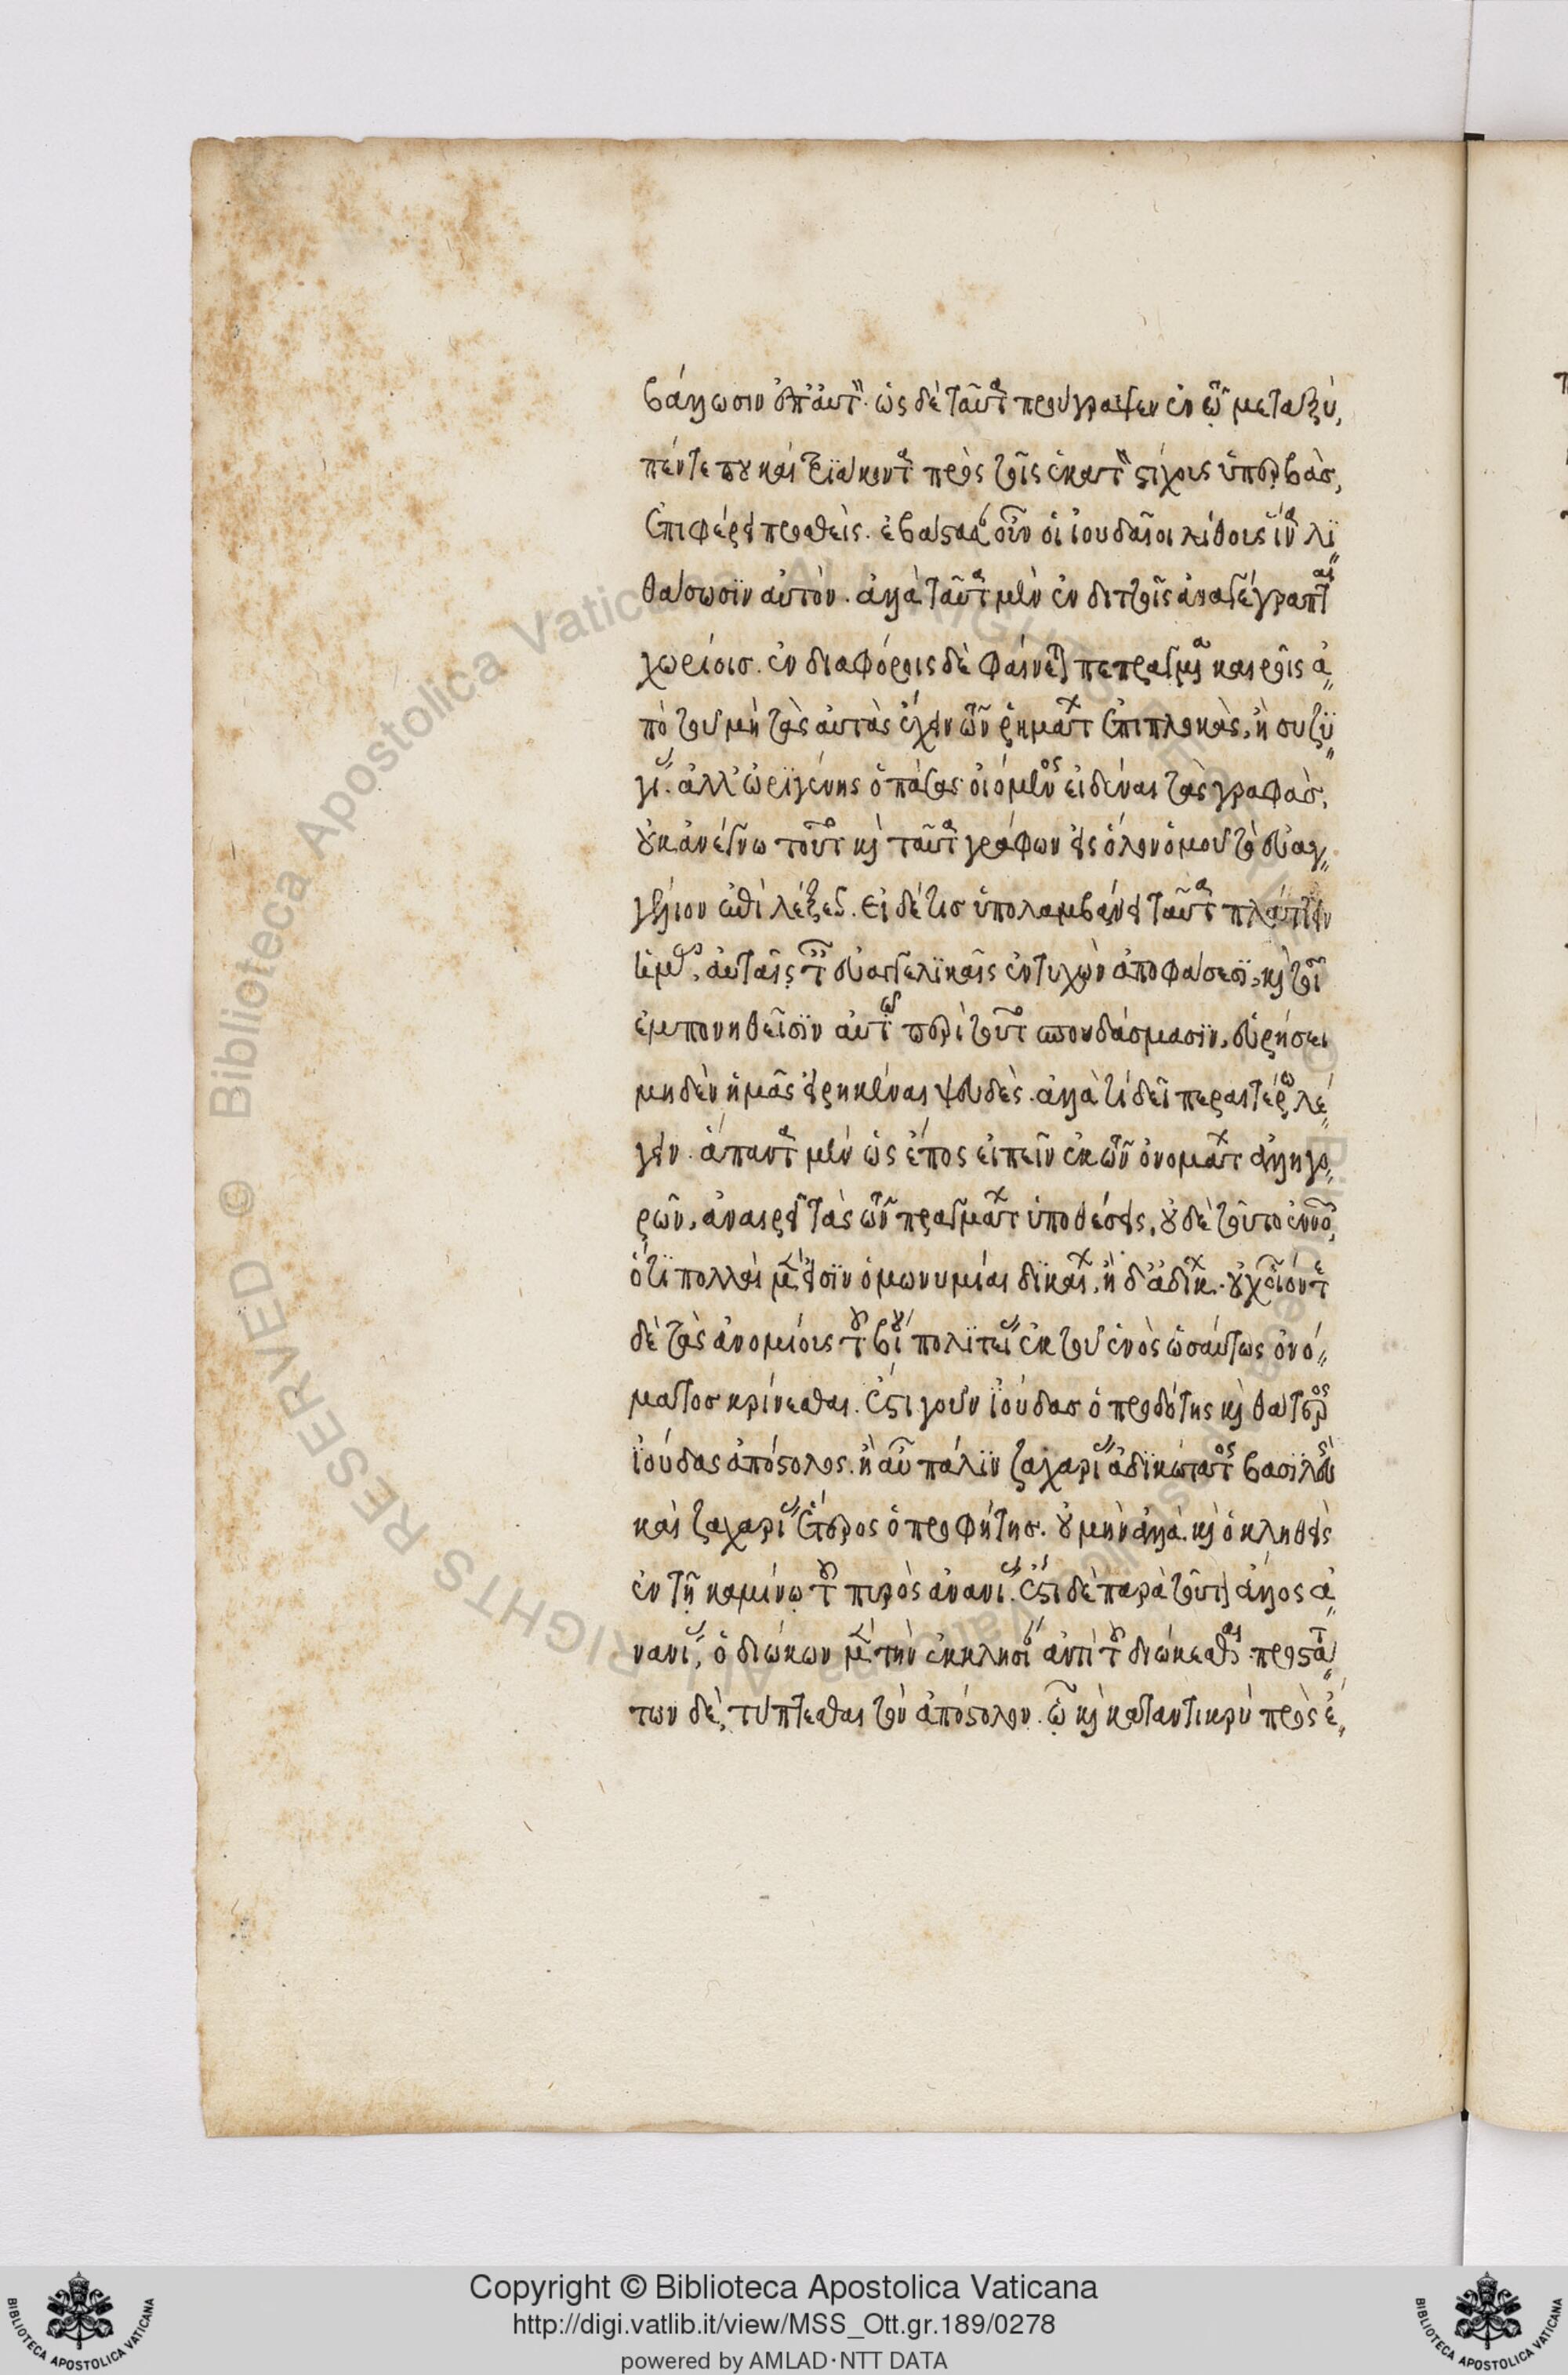 βάλωσιν ἐπ' αὐτόν. ὡς δὲ ταῦτα προύγραψεν ἐν τῷ μεταξύ,
πέντε που καὶ τριάκοντα πρὸς τοῖς ἑκατὸν στίχοις ὑπερβάς,
ἐπιφέρει προσθείς. ἐβάστασαν οὖν οἱ ἰουδαῖοι λίθους ἵνα λι
θάσωσιν αὐτόν. ἀλλὰ ταῦτα μὲν ἐν διττοῖς ἀναγέγραπται
χωρίοις. ἐν διαφόροις δὲ φαίνεται πεπραγμένα καιροῖς ἀ
πὸ τοῦ μὴ τὰς αὐτὰς ἔχειν τῶν ῥημάτων ἐπιπλοκὰς, ἢ συζυ
γίας. ἀλλ' ὠριγένης ὁ πάσας οἰόμενος εἰδέναι τὰς γραφάς,
οὐκ ἀνέγνω τοῦτο καὶ ταῦτα γράφων εἰς ὅλον ὁμοῦ τὸ εὐαγ
γέλιον ἐπὶ λέξεων. εἰ δέ τις ὑπολαμβάνει ταῦτα πλάττειν
ἡμᾶς, αὐταῖς ταῖς εὐαγγελικαῖς ἐντυχὼν ἀποφάσεσι, καὶ τοῖς
ἐμπονηθεῖσιν αὐτῷ περὶ τούτων σπουδάσμασιν, εὑρήσει
μηδὲν ἡμᾶς εἰρηκέναι ψευδές. ἀλλὰ τί δεῖ περαιτέρω λέ
γειν. ἅπαντα μὲν ὡς ἔπος εἰπεῖν ἐκ τῶν ὀνομάτων ἀλληγο
ρῶν, ἀναιρεῖ τὰς τῶν πραγμάτων ὑποθέσεις, οὐδὲ τοῦτο ἐννοῶν,
ὅτι πολλαὶ μέν εἰσιν ὁμωνυμίαι δικαίων, ἢ δ' ἀδίκων. οὐχ οἷόν τε
δὲ τὰς ἀνομοίους τοῦ βίου πολιτείας ἐκ τοῦ ἑνὸς ὡσαύτως ὀνό
ματος κρίνεσθαι. ἔστι γοῦν ἰούδας ὁ προδότης καὶ θάτερος
ἰούδας ἀπόστολος. ἢ αὖ πάλιν ζαχαρίας ἀδικώτατος βασιλεὺς
καὶ ζαχαρίας ἕτερος ὁ προφήτης. οὐ μὴν ἀλλὰ καὶ ὁ κληθεὶς
ἐν τῇ καμίνῳ τοῦ πυρὸς ἀνανίας. ἔστι δὲ παρὰ τοῦτον ἄλλος ἀ
νανίας, ὁ διώκων μὲν τὴν ἐκκλησίαν ἀντὶ τοῦ διώκεσθαι. προστάτ
των δὲ, τύπτεσθαι τὸν ἀπόστολον. ᾧ καὶ καταντικρὺ πρὸς ἔ
Copyright © Biblioteca Apostolica Vaticana
http://digi.vatlib.it/view/MSS_Ott.gr.189/0278
powered by AMLAD·NTT DATA